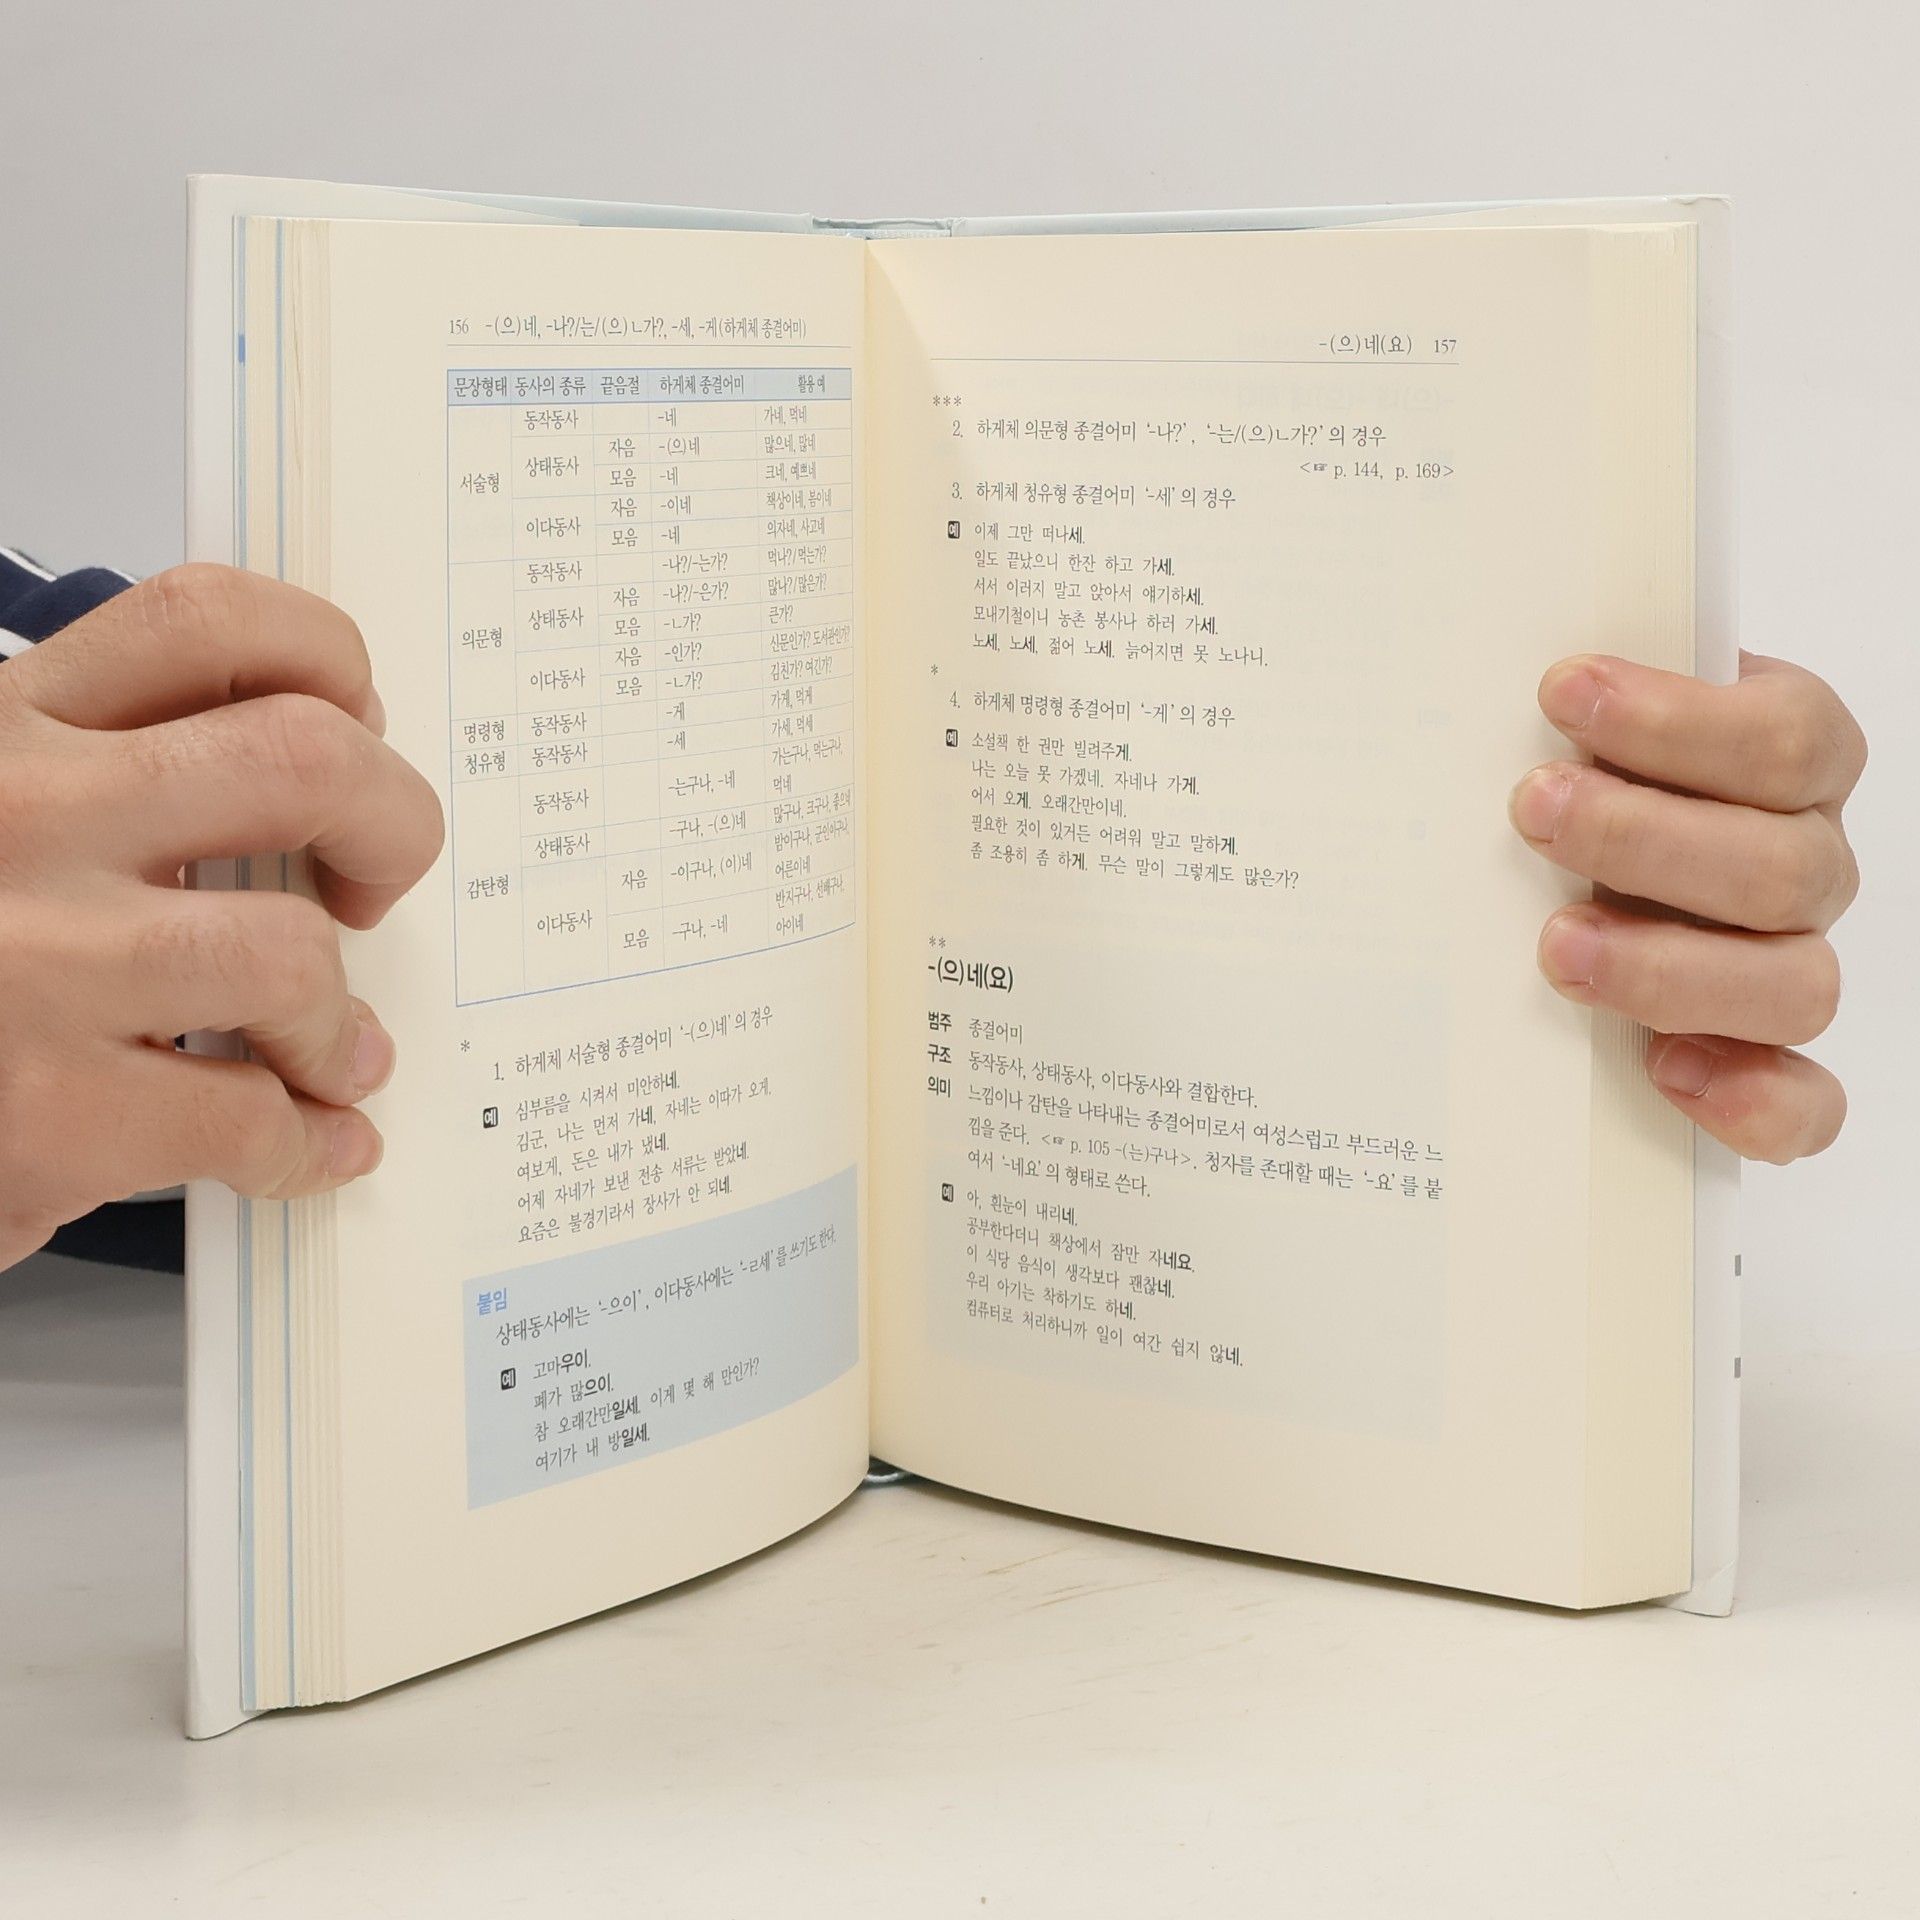 156 -(으)네, -나?/는/(으)ㄴ가?, -세, -게(하게체 종결어미)
문장형태 동사의 종류 끝음절 하게체 종결어미 활용 예
서술형 동작동사 -네 가네, 먹네
상태동사 자음 -(으)네 많으네, 많네
모음 -네 크네, 예쁘네
이다동사 자음 -이네 책상이네, 봄이네
모음 -네 의자네, 사고네
의문형 동작동사 -나?/-는가? 먹나?/먹는가?
상태동사 자음 -나?/-은가? 많나?/많은가?
모음 -ㄴ가? 큰가?
이다동사 자음 -인가? 신문인가? 도서관인가?
모음 -ㄴ가? 김친가? 여긴가?
명령형 동작동사 -게 가게, 먹게
청유형 동작동사 -세 가세, 먹세
감탄형 동작동사 -는구나, -네 가는구나, 먹는구나,
먹네
상태동사 -구나, -(으)네 많구나, 크구나, 좋으네
이다동사 자음 -이구나, (이)네 밤이구나, 군인이구나,
어른이네
모음 -구나, -네 반지구나, 선배구나,
아이네
*
1. 하게체 서술형 종결어미 ‘-(으)네’의 경우
예 심부름을 시켜서 미안하네.
김군, 나는 먼저 가네, 자네는 이따가 오게.
여보게, 돈은 내가 냈네.
어제 자네가 보낸 전송 서류는 받았네.
요즘은 불경기라서 장사가 안 되네.
붙임
상태동사에는 ‘-으이’, 이다동사에는 ‘-ㄹ세’를 쓰기도 한다.
예 고마우이.
폐가 많으이.
참 오래간만일세. 이게 몇 해 만인가?
여기가 내 방일세.
-(으)네(요) 157
***
2. 하게체 의문형 종결어미 ‘-나?’, ‘-는/(으)ㄴ가?’의 경우
<☞ p. 144, p. 169>
3. 하게체 청유형 종결어미 ‘-세’의 경우
예 이제 그만 떠나세.
일도 끝났으니 한잔 하고 가세.
서서 이러지 말고 앉아서 얘기하세.
모내기철이니 농촌 봉사나 하러 가세.
노세, 노세, 젊어 노세. 늙어지면 못 노나니.
*
4. 하게체 명령형 종결어미 ‘-게’의 경우
예 소설책 한 권만 빌려주게.
나는 오늘 못 가겠네. 자네나 가게.
어서 오게. 오래간만이네.
필요한 것이 있거든 어려워 말고 말하게.
좀 조용히 좀 하게. 무슨 말이 그렇게도 많은가?
**
-(으)네(요)
범주 종결어미
구조 동작동사, 상태동사, 이다동사와 결합한다.
의미 느낌이나 감탄을 나타내는 종결어미로서 여성스럽고 부드러운 느
낌을 준다. <☞ p. 105 -(는)구나>. 청자를 존대할 때는 ‘-요’를 붙
여서 ‘-네요’의 형태로 쓴다.
예 아, 흰눈이 내리네.
공부한다더니 책상에서 잠만 자네요.
이 식당 음식이 생각보다 괜찮네.
우리 아기는 착하기도 하네.
컴퓨터로 처리하니까 일이 여간 쉽지 않네.